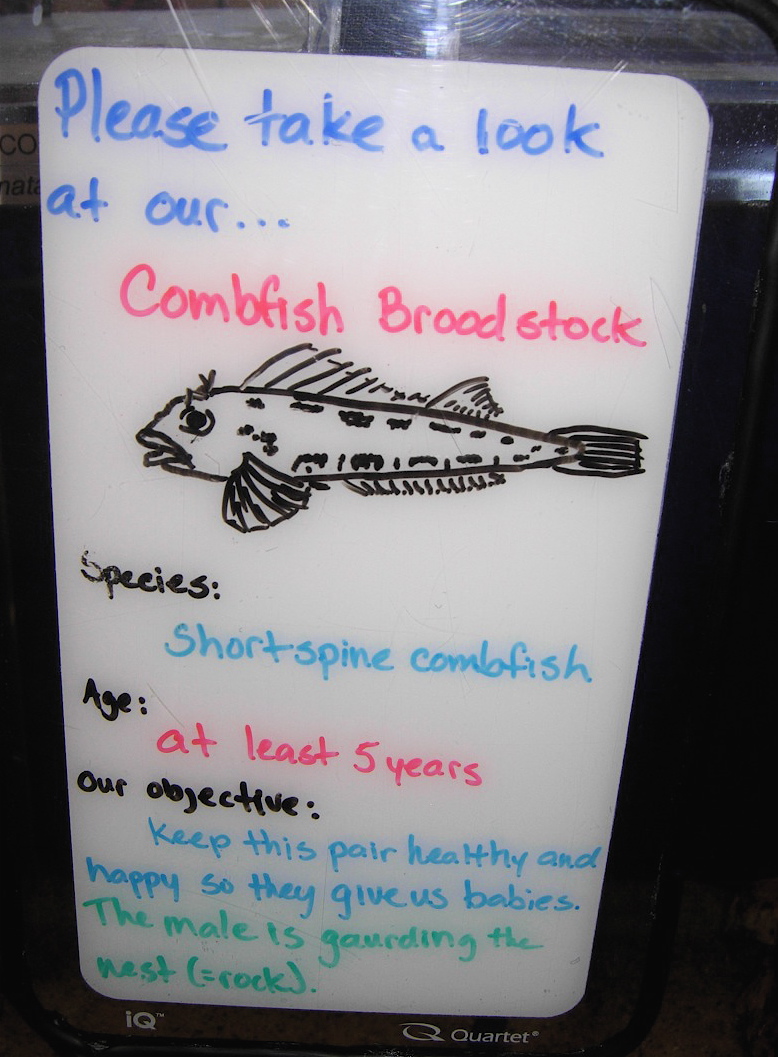 Please take a look
at our...
Combfish Broodstock
Species:
Shortspine combfish
Age:
at least 5 years
Our objective:
keep this pair healthy and
happy so they give us babies.
The male is gaurding the
nest (=rock).
iQ™
Quartet®